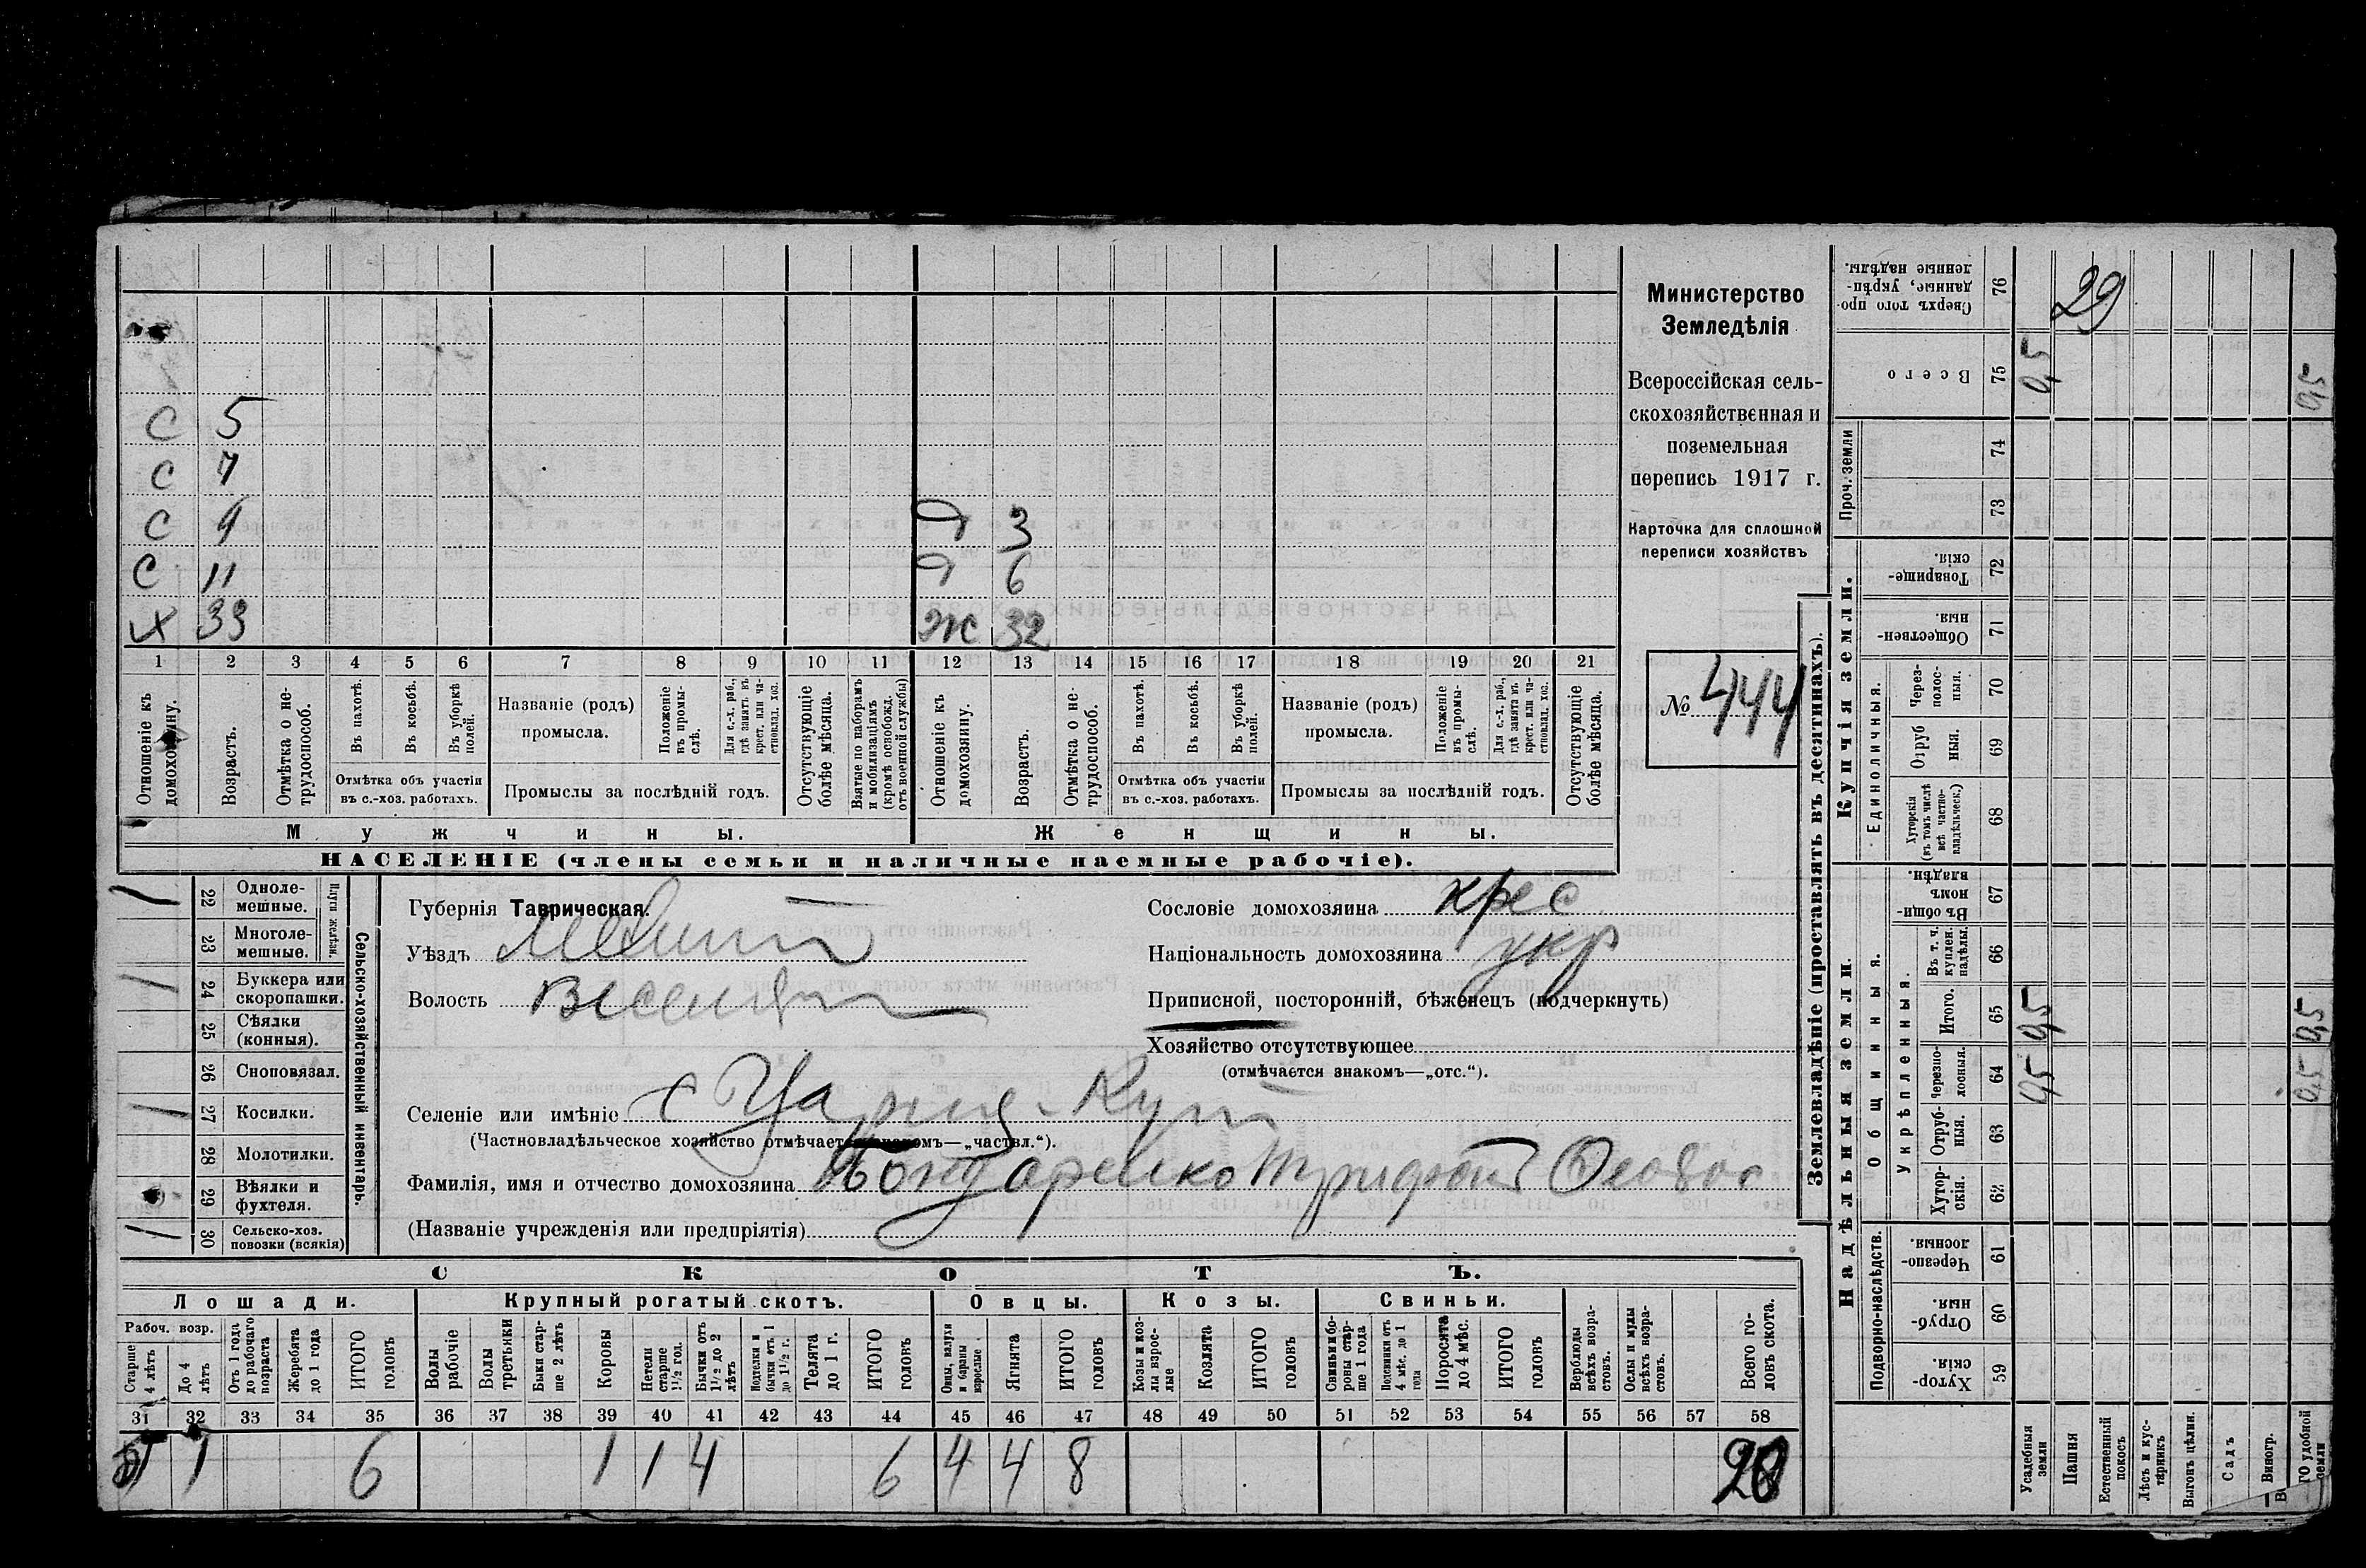 С 5
С 7
С 9
С 11
Х 33
Д 3
Д 6
Ж 32
1 2 3 4 5 6 7 8 9 10 11 12 13 14 15 16 17 18 19 20 21
Отношеніе къ домохозяину.
Возрастъ.
Отмѣтка о не-трудоспособ.
Въ пахотѣ.
Въ косьбѣ.
Въ уборкѣ полей.
Отмѣтка объ участіи въ с.-хоз. работахъ.
Названіе (родъ) промысла.
Положеніе въ промы-слѣ.
Для с.-х. раб., гдѣ занятъ въ крест. или ча-стновлад. хоз.
Промыслы за послѣдній годъ.
Отсутствующіе болѣе мѣсяца.
Взятые по наборамъ и мобилизаціямъ (кромѣ освобожд. отъ военной службы)
Отношеніе къ домохозяину.
Возрастъ.
Отмѣтка о не-трудоспособ.
Въ пахотѣ.
Въ косьбѣ.
Въ уборкѣ полей.
Отмѣтка объ участіи въ с.-хоз. работахъ.
Названіе (родъ) промысла.
Положеніе въ промы-слѣ.
Для с.-х. раб., гдѣ занята въ крест. или ча-стновлад. хоз.
Промыслы за послѣдній годъ.
Отсутствующіе болѣе мѣсяца.
Мужчины.
Женщины.
НАСЕЛЕНІЕ (члены семьи и наличные наемные рабочіе).
Министерство
Земледѣлія
Всероссійская сель-
скохозяйственная и
поземельная
перепись 1917 г.
Карточка для сплошной
переписи хозяйствъ
№ 444
22 Одноле-мешные.
23 Многоле-мешные.
Плуги желѣзн.
24 Буккера или скоропашки.
25 Сѣялки (конныя).
26 Сноповязал.
27 Косилки.
28 Молотилки.
29 Вѣялки и фухтеля.
30 Сельско-хоз. повозки (всякія)
Сельско-хозяйственный инвентарь.
Губернія Таврическая.
Уѣздъ Мелит
Волость Веселовск
Сословіе домохозяина крес
Національность домохозяина укр
Приписной, посторонній, бѣженецъ (подчеркнуть)
Хозяйство отсутствующее
(отмѣчается знакомъ—„отс.“).
Селеніе или имѣніе с
(Частновладѣльческое хозяйство отмѣчается знакомъ—„частвл.“).
Фамилія, имя и отчество домохозяина Бондаренко Трифон
(Названіе учрежденія или предпріятія)
СКОТЪ.
Лошади.
Крупный рогатый скотъ.
Овцы.
Козы.
Свиньи.
Рабоч. возр.
Старше 4 лѣтъ
До 4 лѣтъ
Отъ 1 года до рабочаго возраста
Жеребята до 1 года
ИТОГО головъ
Волы рабочіе
Волы третьяки
Быки стар-ше 2 лѣтъ
Коровы
Нетели старше 1½ год.
Бычки отъ 1½ до 2 лѣтъ
Подтелки и бычки отъ 1 до 1½ г.
Телята до 1 г.
ИТОГО головъ
Овцы, валухи и бараны взрослые
Ягнята
ИТОГО головъ
Козы и коз-лы взрос-лые
Козлята
ИТОГО головъ
Свиньи и бо-ровы стар-ше 1 года
Подсвинки отъ 4 мѣс. до 1 года
Поросята до 4 мѣс.
ИТОГО головъ
Верблюды всѣхъ возра-стовъ.
Ослы и мулы всѣхъ возра-стовъ.
Всего го-ловъ скота.
31 32 33 34 35 36 37 38 39 40 41 42 43 44 45 46 47 48 49 50 51 52 53 54 55 56 57 58
5 1 6 1 1 4 6 4 4 8 20
Землевладѣніе (проставлять въ десятинахъ).
Надѣльныя земли.
Купчія земли.
Проч. земли
Подворно-наслѣдств.
Общинныя.
Укрѣпленныя.
Единоличныя.
Сверхъ того про-данные, укрѣп-ленные надѣлы. 76
Всего 75
74
73
Товарище-скія. 72
Обществен-ныя. 71
Через-полос-ныя. 70
Отруб-ныя. 69
Хуторскія (въ томъ числѣ всѣ частно-владѣльческ.) 68
Въ общин-номъ владѣн. 67
Въ т. ч. куплен. надѣлы. 66
Итого. 65
Черезпо-лосныя. 64
Отруб-ныя. 63
Хутор-скія. 62
Черезпо-лосныя. 61
Отруб-ныя. 60
Хутор-скія. 59
29
0,5
0,5
0,5
0,5
0,5
0,5
Усадебныя земли
Пашня
Естественный покосъ
Лѣсъ и кус-тарникъ
Выгонъ цѣлин.
Садъ
Виногр.
ГО удобной земли